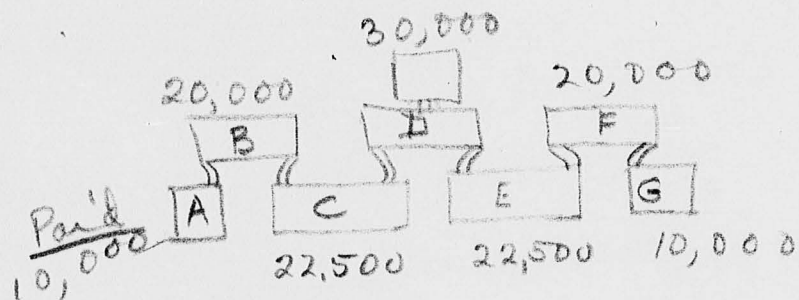 30,000
20,000
20,000
B
D
F
A
C
E
G
Pai'd
10,000
22,500
22,500
10,000